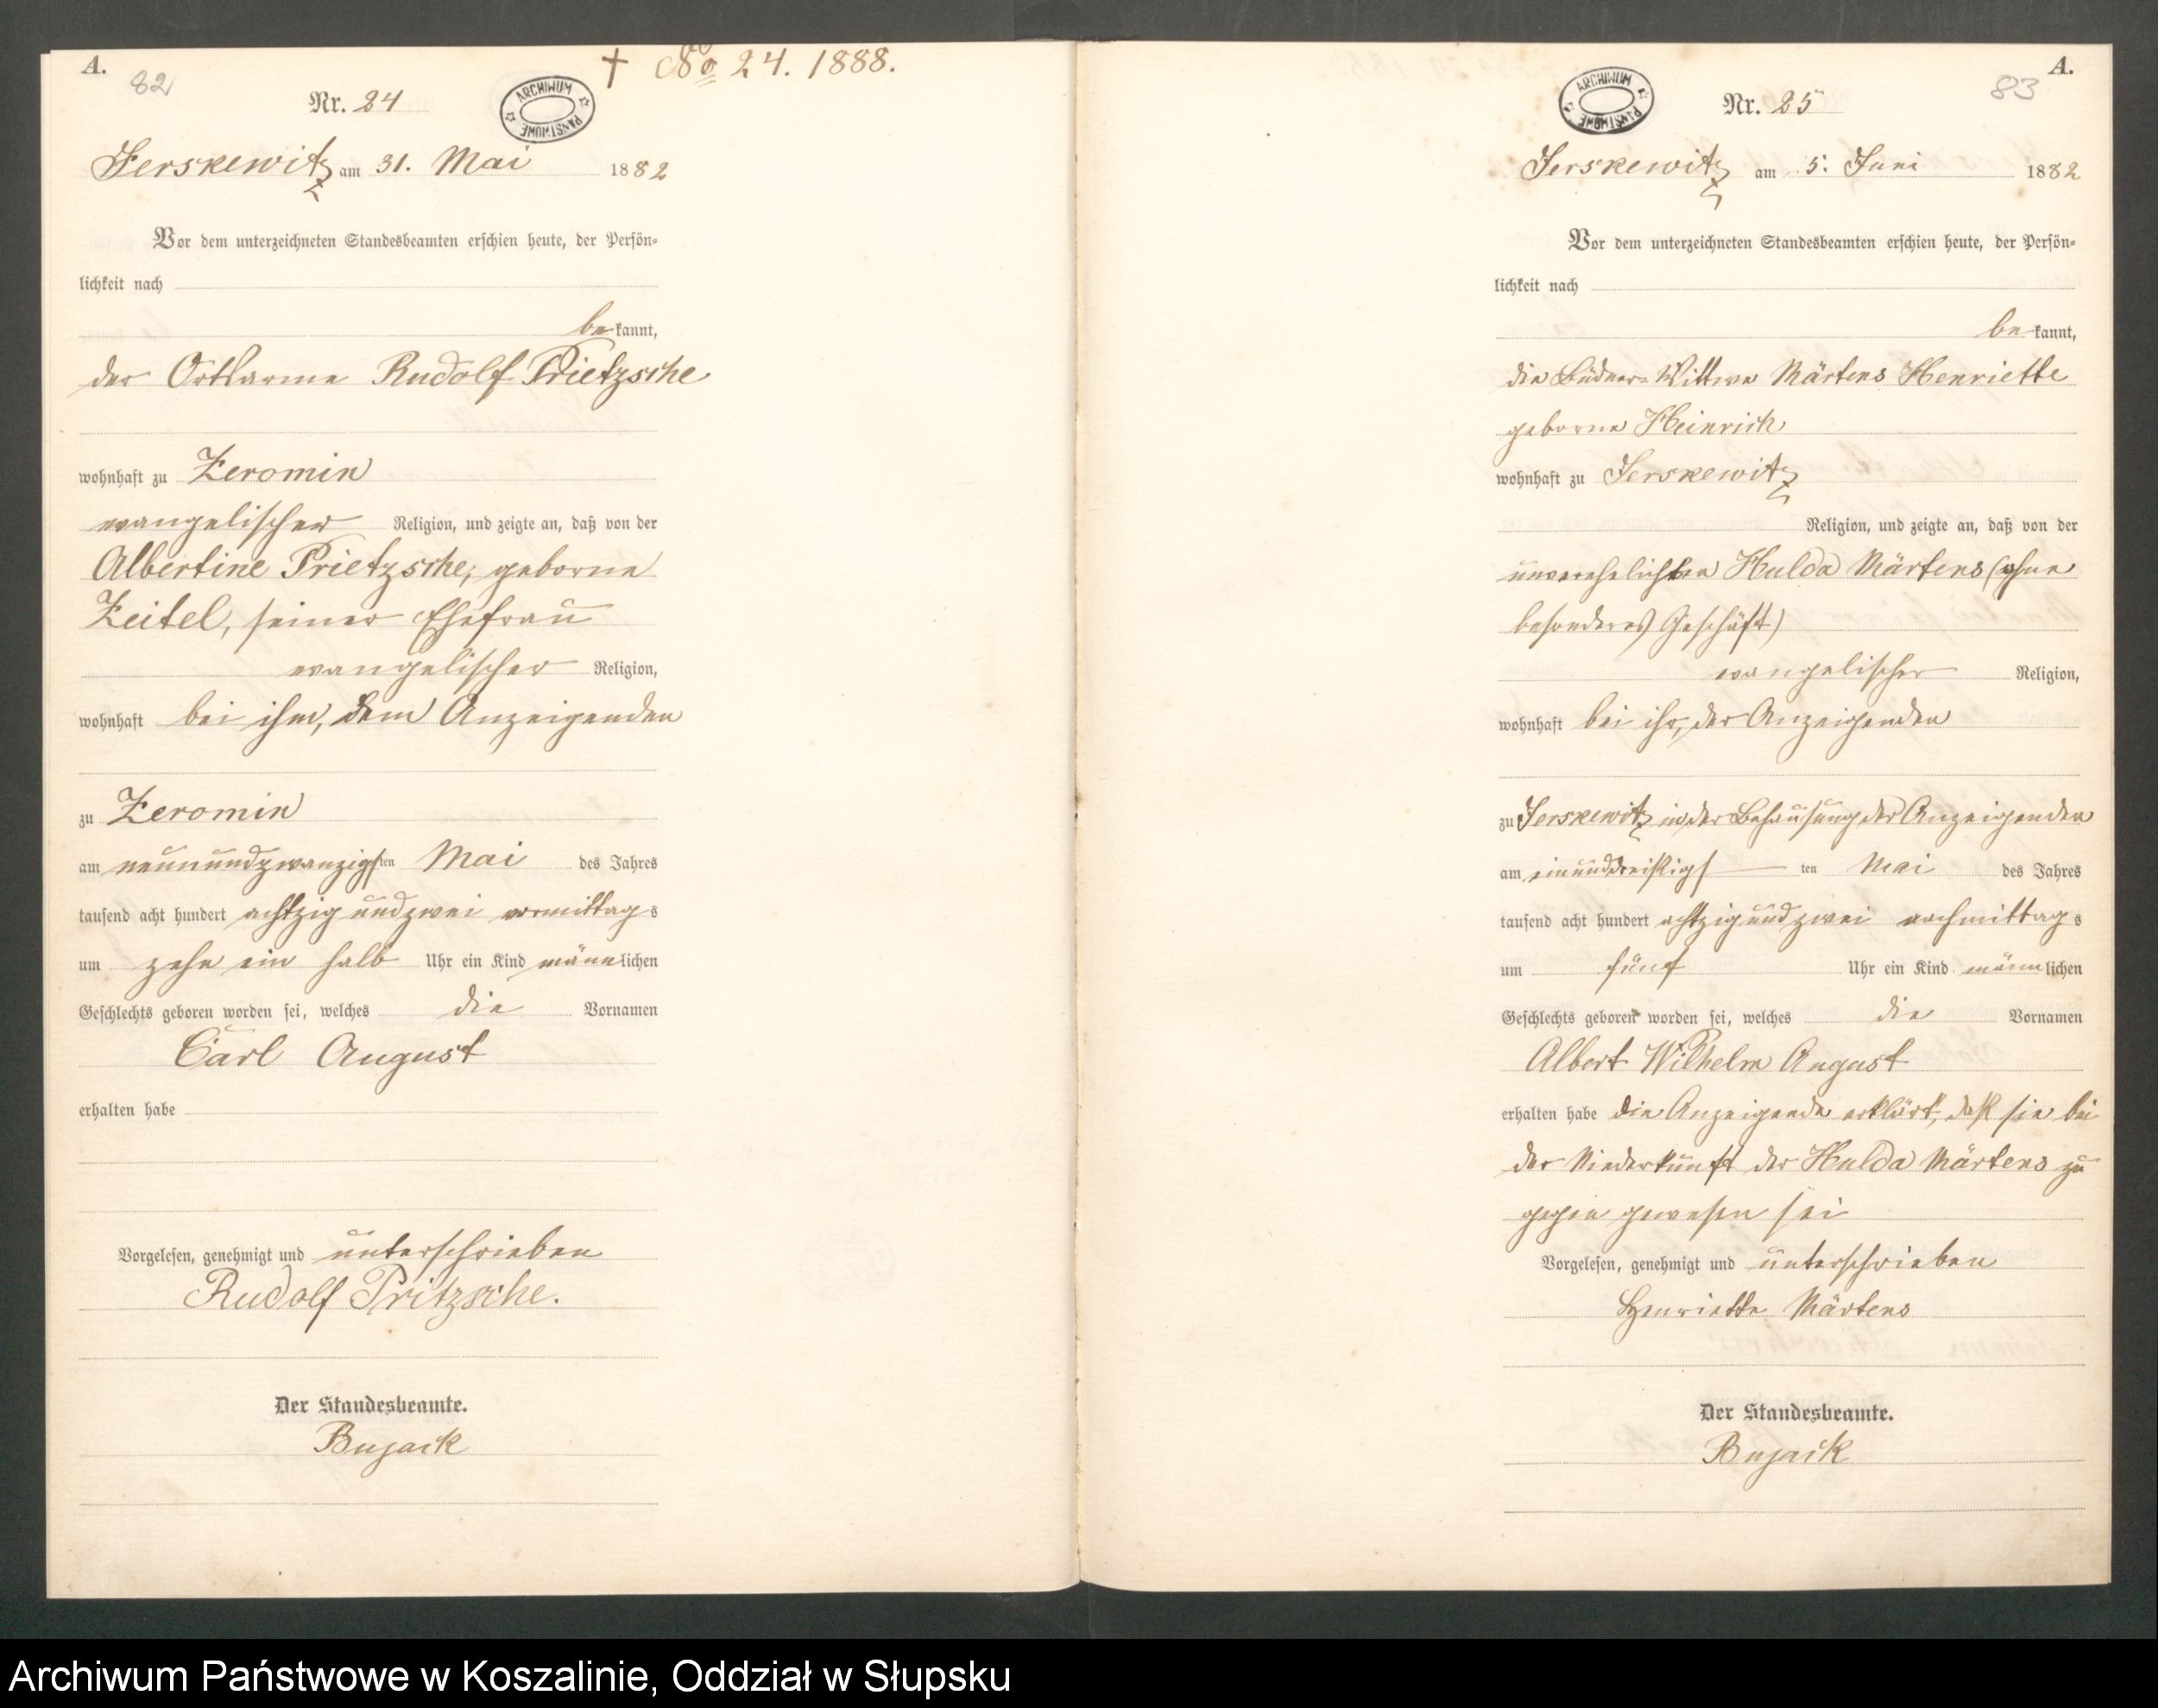 A.
82
† No 24. 1888.
Nr. 24
ARCHIWUM PAŃSTWOWE
Jerskewitz am 31. Mai 1882
Vor dem unterzeichneten Standesbeamten erschien heute, der Persön-
lichkeit nach
bekannt,
der Ortsarme Rudolf Prietzsche
wohnhaft zu Zeromin
evangelischer Religion, und zeigte an, daß von der
Albertine Prietzsche, geborne
Zeitel, seiner Ehefrau
evangelischer Religion,
wohnhaft bei ihm, dem Anzeigenden
zu Zeromin
am neunundzwanzigsten Mai des Jahres
tausend acht hundert achtzig und zwei vormittags
um zehn ein halb Uhr ein Kind männlichen
Geschlechts geboren worden sei, welches die Vornamen
Carl August
erhalten habe
Vorgelesen, genehmigt und unterschrieben
Rudolf Pritzsche.
Der Standesbeamte.
Bujack
A.
83
Nr. 25
ARCHIWUM PAŃSTWOWE
Jerskewitz am 5. Juni 1882
Vor dem unterzeichneten Standesbeamten erschien heute, der Persön-
lichkeit nach
bekannt,
die Büdner-Wittwe Märtens Henriette
geborne Heinrich
wohnhaft zu Jerskewitz
Religion, und zeigte an, daß von der
unverehelichten Hulda Märtens (ohne
besonderes Geschäft)
evangelischer Religion,
wohnhaft bei ihr, der Anzeigenden
zu Jerskewitz in der Behausung der Anzeigenden
am einunddreißigsten Mai des Jahres
tausend acht hundert achtzig und zwei nachmittags
um fünf Uhr ein Kind männlichen
Geschlechts geboren worden sei, welches die Vornamen
Albert Wilhelm August
erhalten habe die Anzeigende erklärt, daß sie bei
der Niederkunft der Hulda Märtens zu
gegen gewesen sei
Vorgelesen, genehmigt und unterschrieben
Henriette Märtens
Der Standesbeamte.
Bujack
Archiwum Państwowe w Koszalinie, Oddział w Słupsku